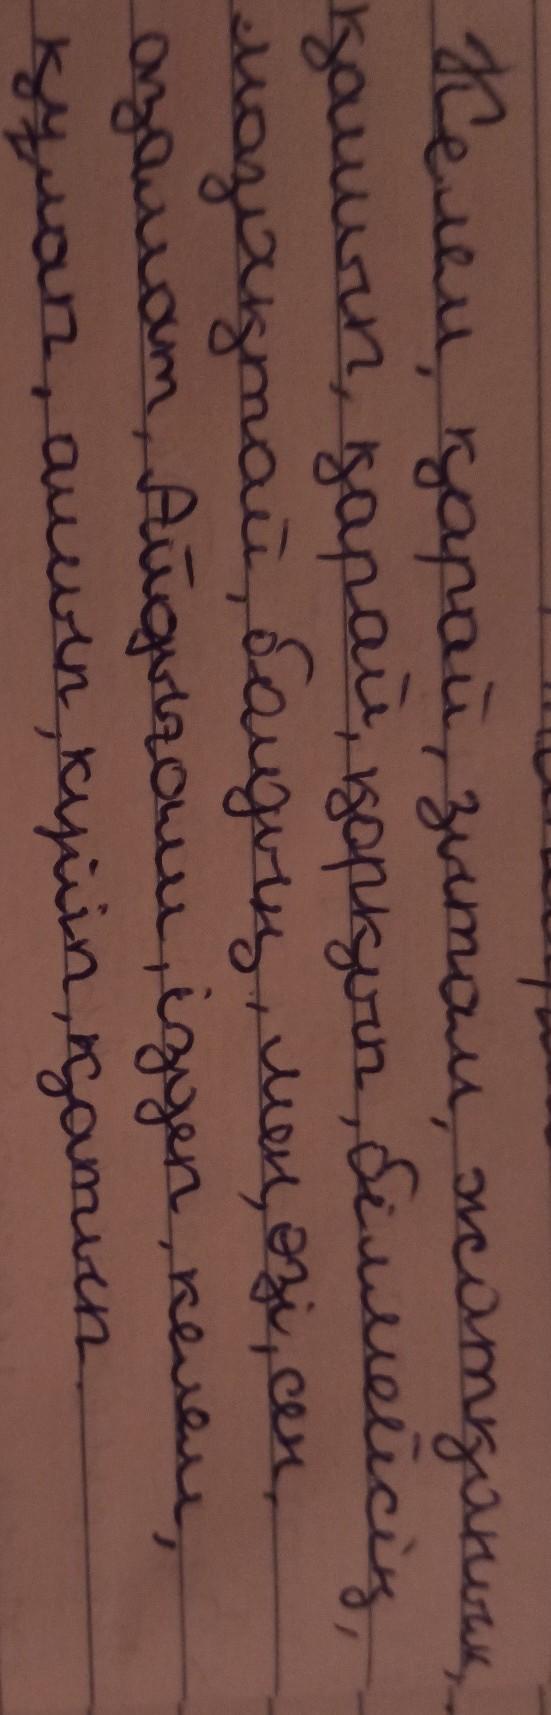 Желем, қарай, зытам, жатқаның,
қалып, қарай, қорқып, білмейсің,
мазықтай, балдың, мен, өзі, сен,
азамат, Айдығали, іздеп, келем,
құлап, алып, күліп, қатып.